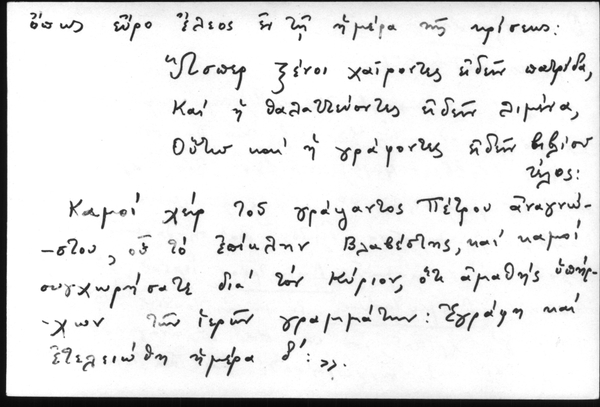 ὅπως εὕρο ἔλεος ἐν τῇ ἡμέρα τῆς κρίσεως:
Ὥσπερ ξένοι χαίροντες ἰδεῖν πατρίδα,
Καὶ ἡ θαλαττεύοντες ἰδεῖν λιμένα,
Οὕτω καὶ ἡ γράφοντες ἰδεῖν βιβλίου
τέλος:
Καμοί χεὶρ τοῦ γράψαντος Πέτρου ἀναγνώ-
-στου, οὗ τὸ ἐπίκλην Βλαβέστης, καὶ καμοί
συγχωρήσατε διά τὸν Κύριον, ὅτι ἀμαθής ὑπήρ-
-χων τῶν ἱερῶν γραμμάτων: Ἐγράφη καί
ἐτελειώθη ἡμέρα δ´: »».